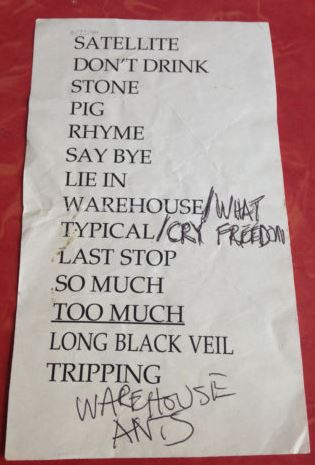 SATELLITE
DON'T DRINK
STONE
PIG
RHYME
SAY BYE
LIE IN
WAREHOUSE/WHAT
TYPICAL/CRY FREEDOM
LAST STOP
SO MUCH
TOO MUCH
LONG BLACK VEIL
TRIPPING
WAREHOUSE
ANTS